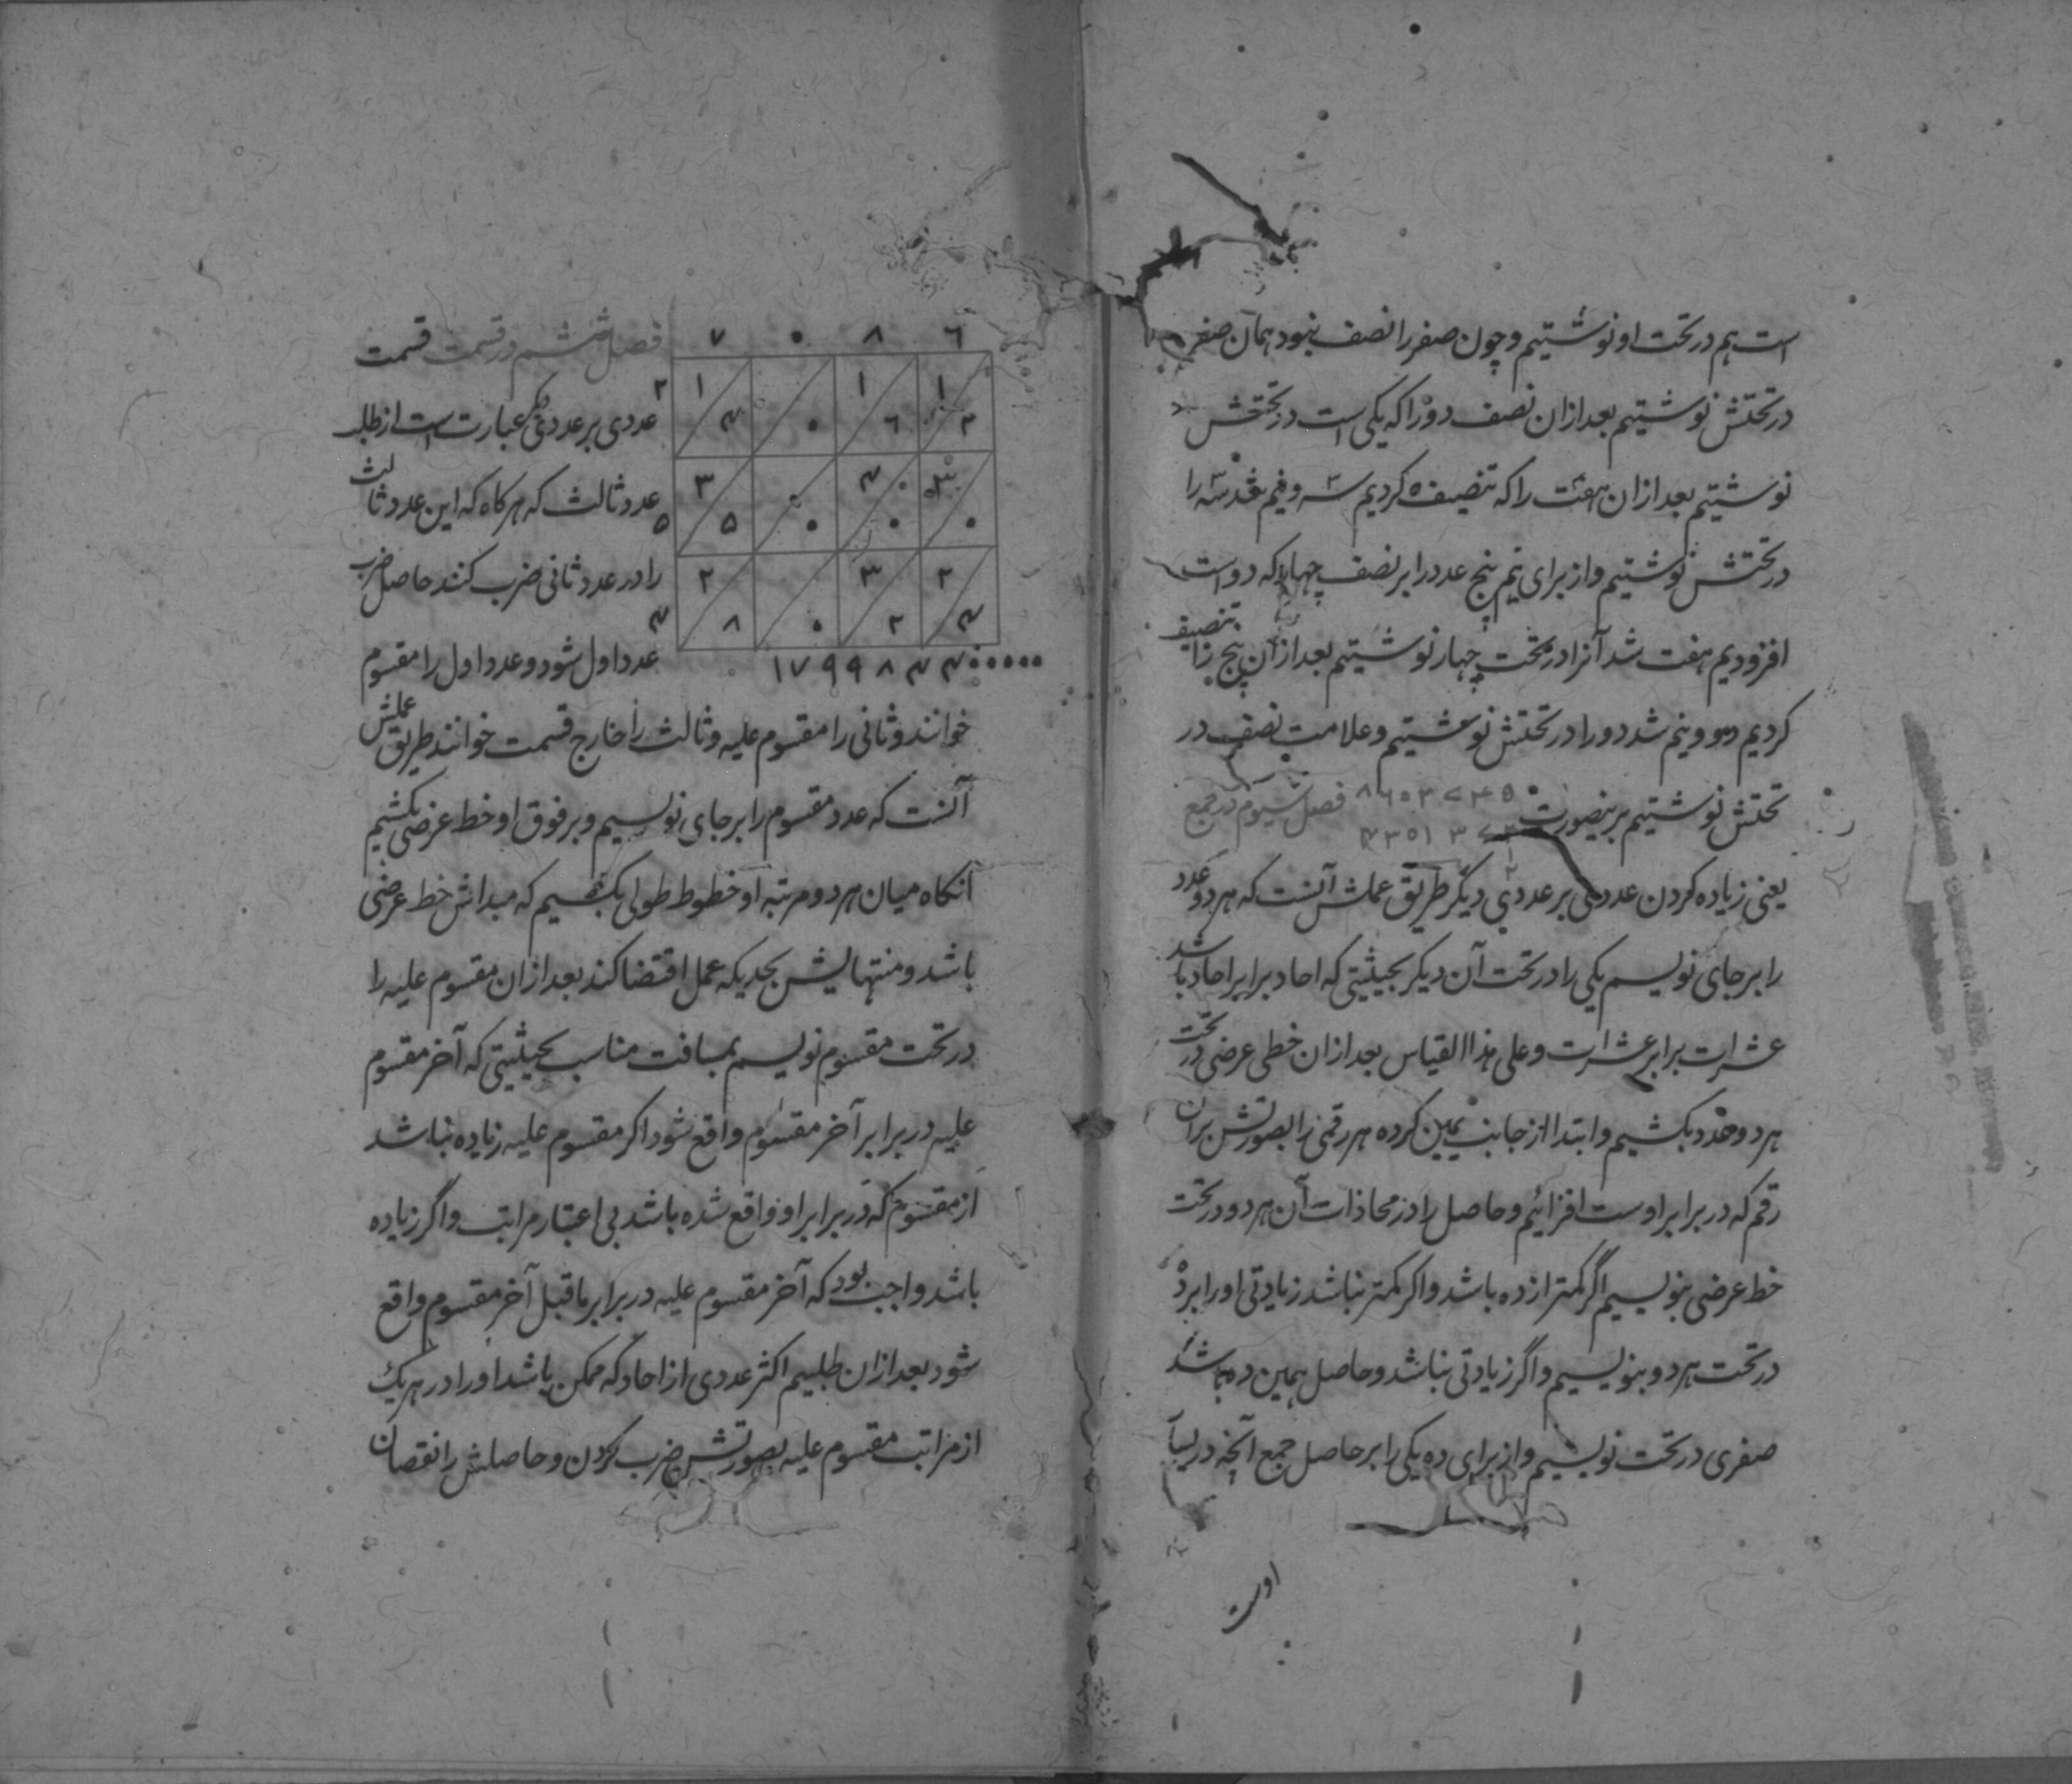 است هم در تحت او نوشتیم و چون صفر را نصف نبود همان صفر
در تحتش نوشتیم بعد ازان نصف دو را که یکی است در تحتش
نوشتیم بعد ازان هفت را که تنصیف کردیم سه و نیم شد سه را
در تحتش نوشتیم و از برای نیم پنج عدد را بر نصف چهار که دو است
افزودیم هفت شد آنرا در تحت چهار نوشتیم بعد ازان پنج را تنصیف
کردیم دو و نیم شد دو را در تحتش نوشتیم و علامت نصف در
تحتش نوشتیم برینصورت فصل سیوم در جمع
یعنی زیاده کردن عددی بر عددی دیگر طریق عملش آنست که هر دو عدد
را بر جای نویسم یکی را در تحت آن دیکر بحیثیتی که احاد برابر احاد باشد
عشرات برابر عشرات و علی هذا القیاس بعد ازان خطی عرضی در تحت
هر دو عدد بکشیم و ابتدا از جانب یمین کرده هر رقمی را بصورتش بران
رقم که در برابر اوست افزائیم و حاصل را در محاذات آن هر دو در تحت
خط عرضی بنویسیم اگر کمتر از ده باشد و اکر کمتر نباشد زیادتی او را بر ده
در تحت هر دو بنویسیم و اگر زیادتی نباشد و حاصل همین ده باشد
صفری در تحت نویسیم و از برای ده یکی را بر حاصل جمع آنچه در یسار
اوست
۷ ۰ ۸ ٦
فصل ششم در قسمت قسمت
عددی بر عددی عبارت است از طلب
عدد ثالث که هرکاه که این عدد ثالث
را در عدد ثانی ضرب کنند حاصل ضرب
عدد اول شود و عدد اول را مقسوم
۱۷۹۹۸۴۴۰۰۰۰۰
خوانند و ثانی را مقسوم علیه و ثالث را خارج قسمت خوانند طریق عملش
آنست که عدد مقسوم را بر جای نویسیم و بر فوق او خط عرضی بکشیم
آنکاه میان هر دو مرتبه او خطوط طولی بکشیم که مبداش خط عرضی
باشد و منتهایش بحدیکه عمل اقتضا کند بعد ازان مقسوم علیه را
در تحت مقسوم نویسم بمسافت مناسب بحیثیتی که آخر مقسوم
علیه در برابر آخر مقسوم واقع شود اکر مقسوم علیه زیاده نباشد
از مقسوم که در برابر او واقع شده باشد بی اعتبار مراتب و اگر زیاده
باشد واجب بود که آخر مقسوم علیه در برابر ماقبل آخر مقسوم واقع
شود بعد ازان طلبیم اکثر عددی از احاد که ممکن باشد او را در هر یک
از مراتب مقسوم علیه بصورتش ضرب کردن و حاصلش را نقصان